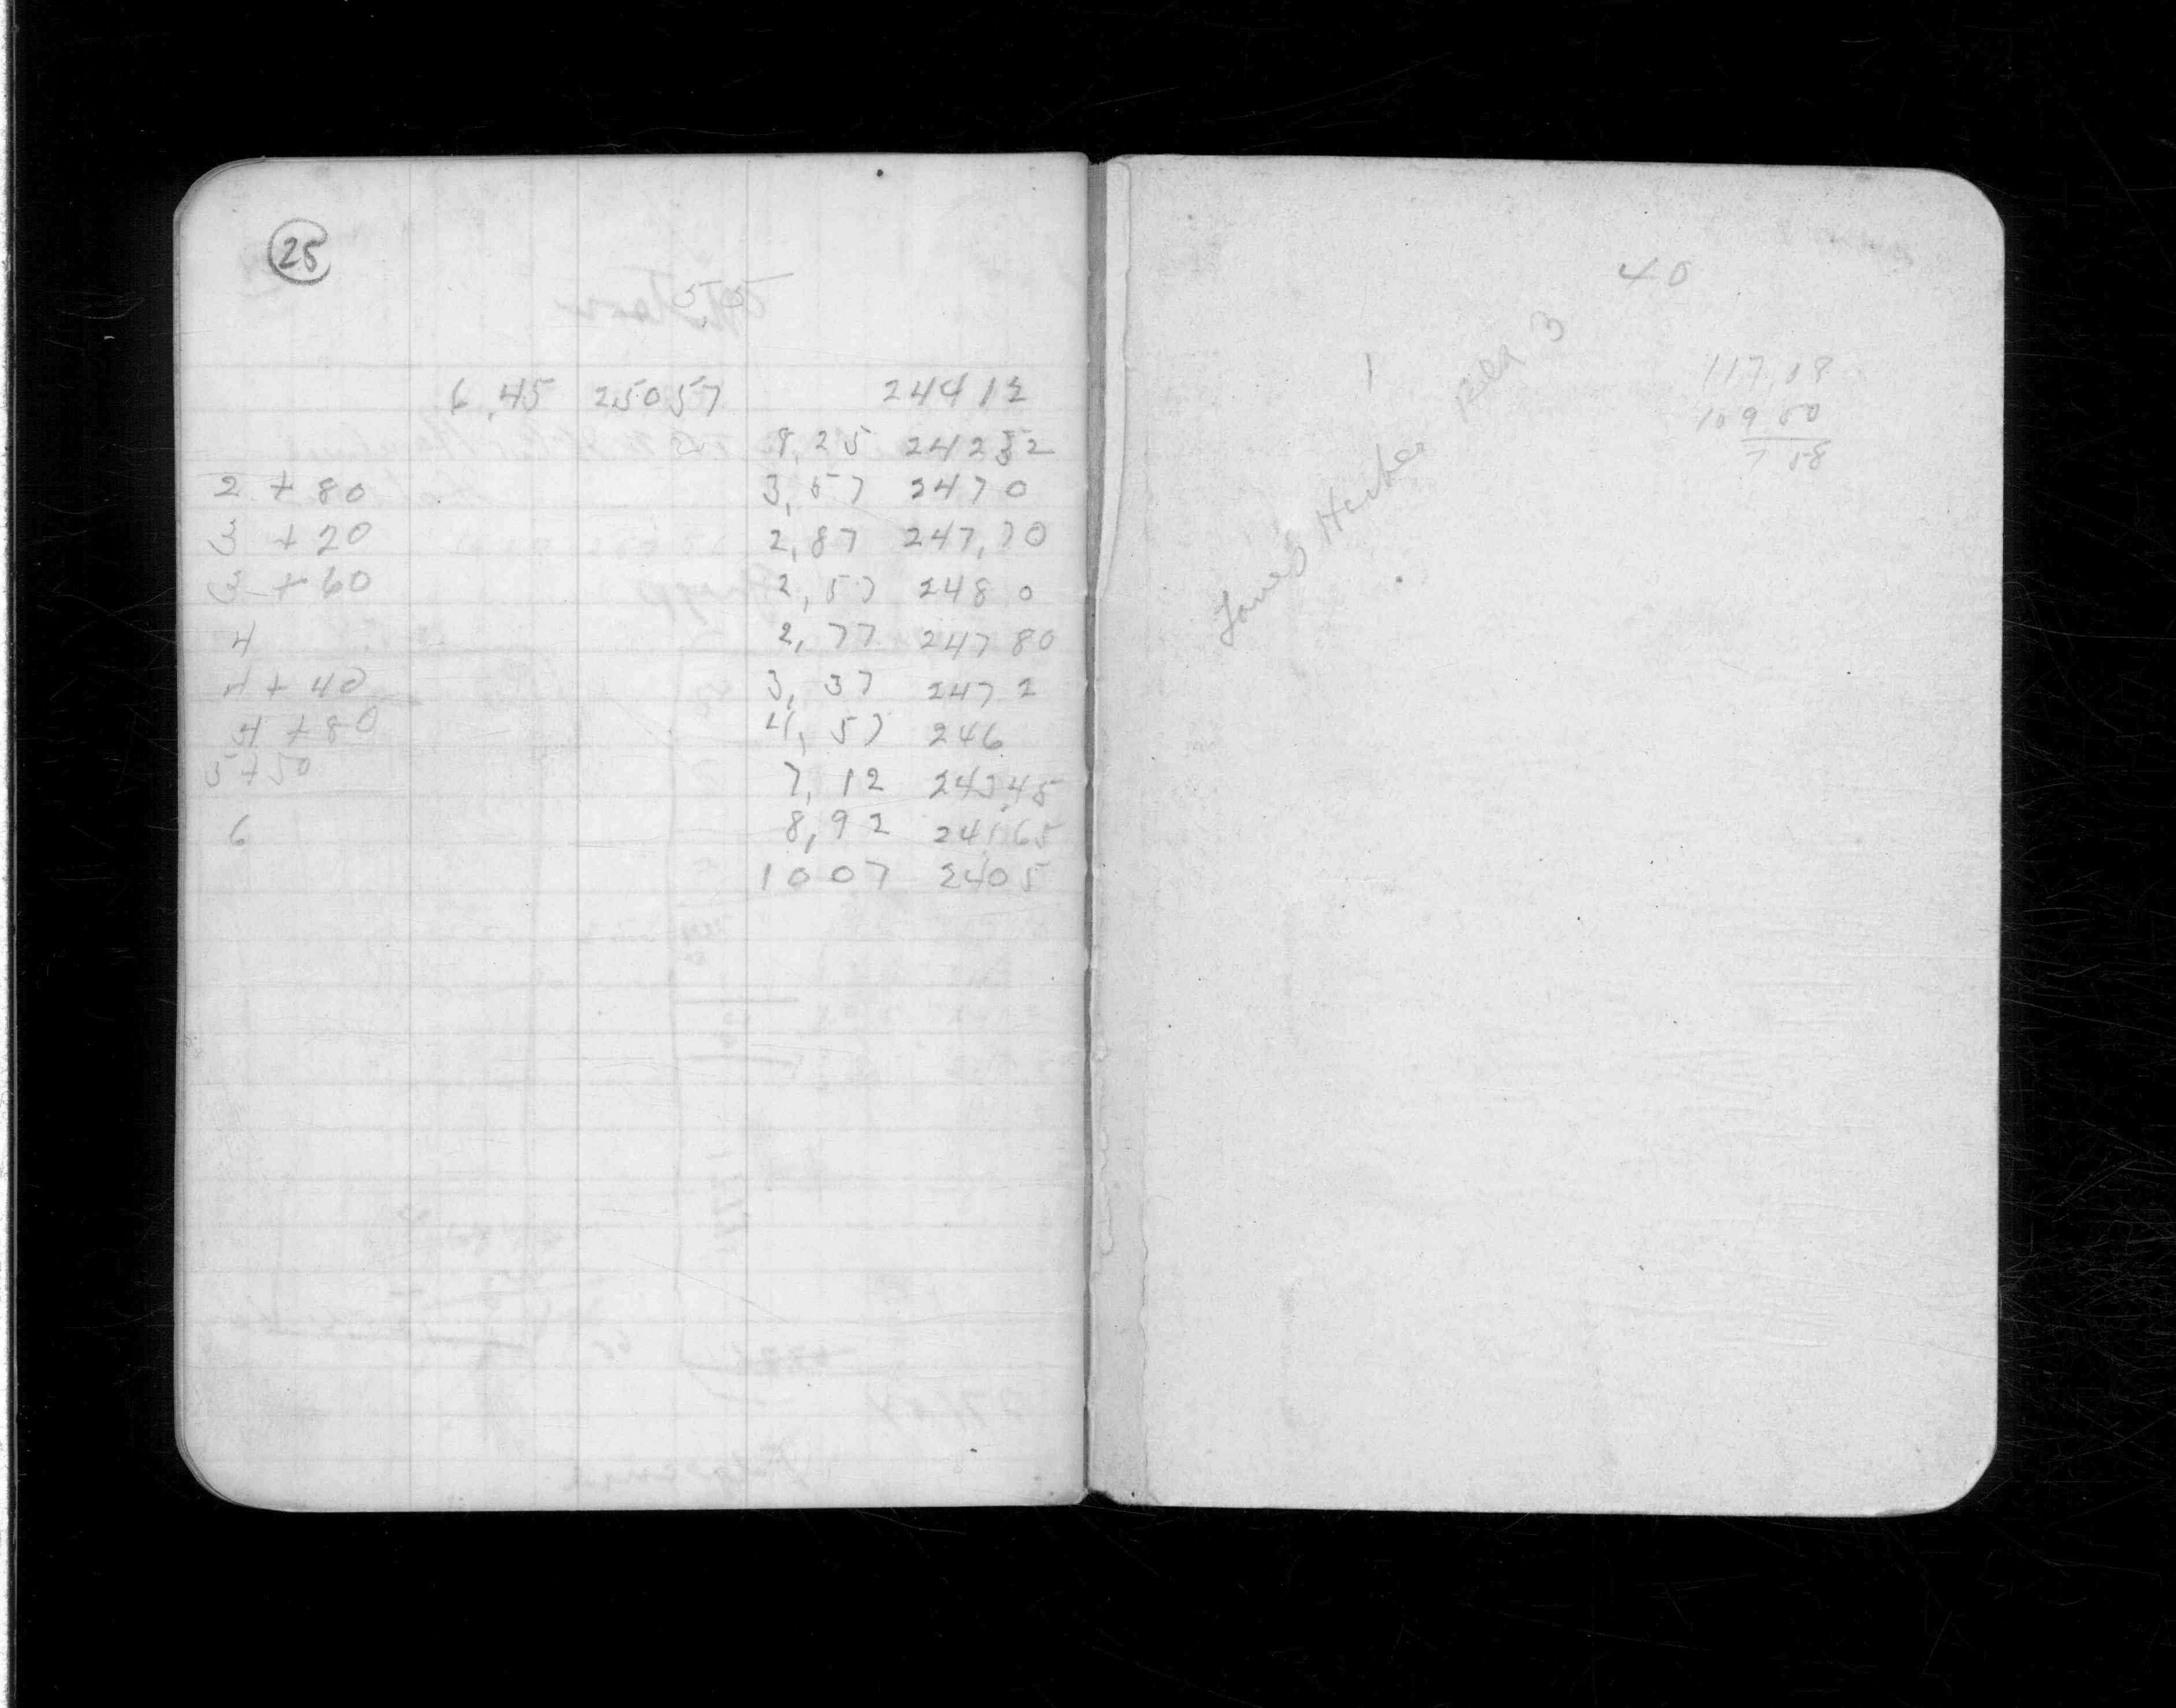 25
5.55
6.45 25057 24412
8,25 24232
2 + 80 3,57 2470
3 + 20 2,87 247,70
3 + 60 2,57 248 0
4 2,77 247 80
4 + 40 3,37 247 2
4 + 80 4,57 246
5+50 7,12 24345
6 8,92 24165
1007 2405
40
1
117.18
109 50
James
3